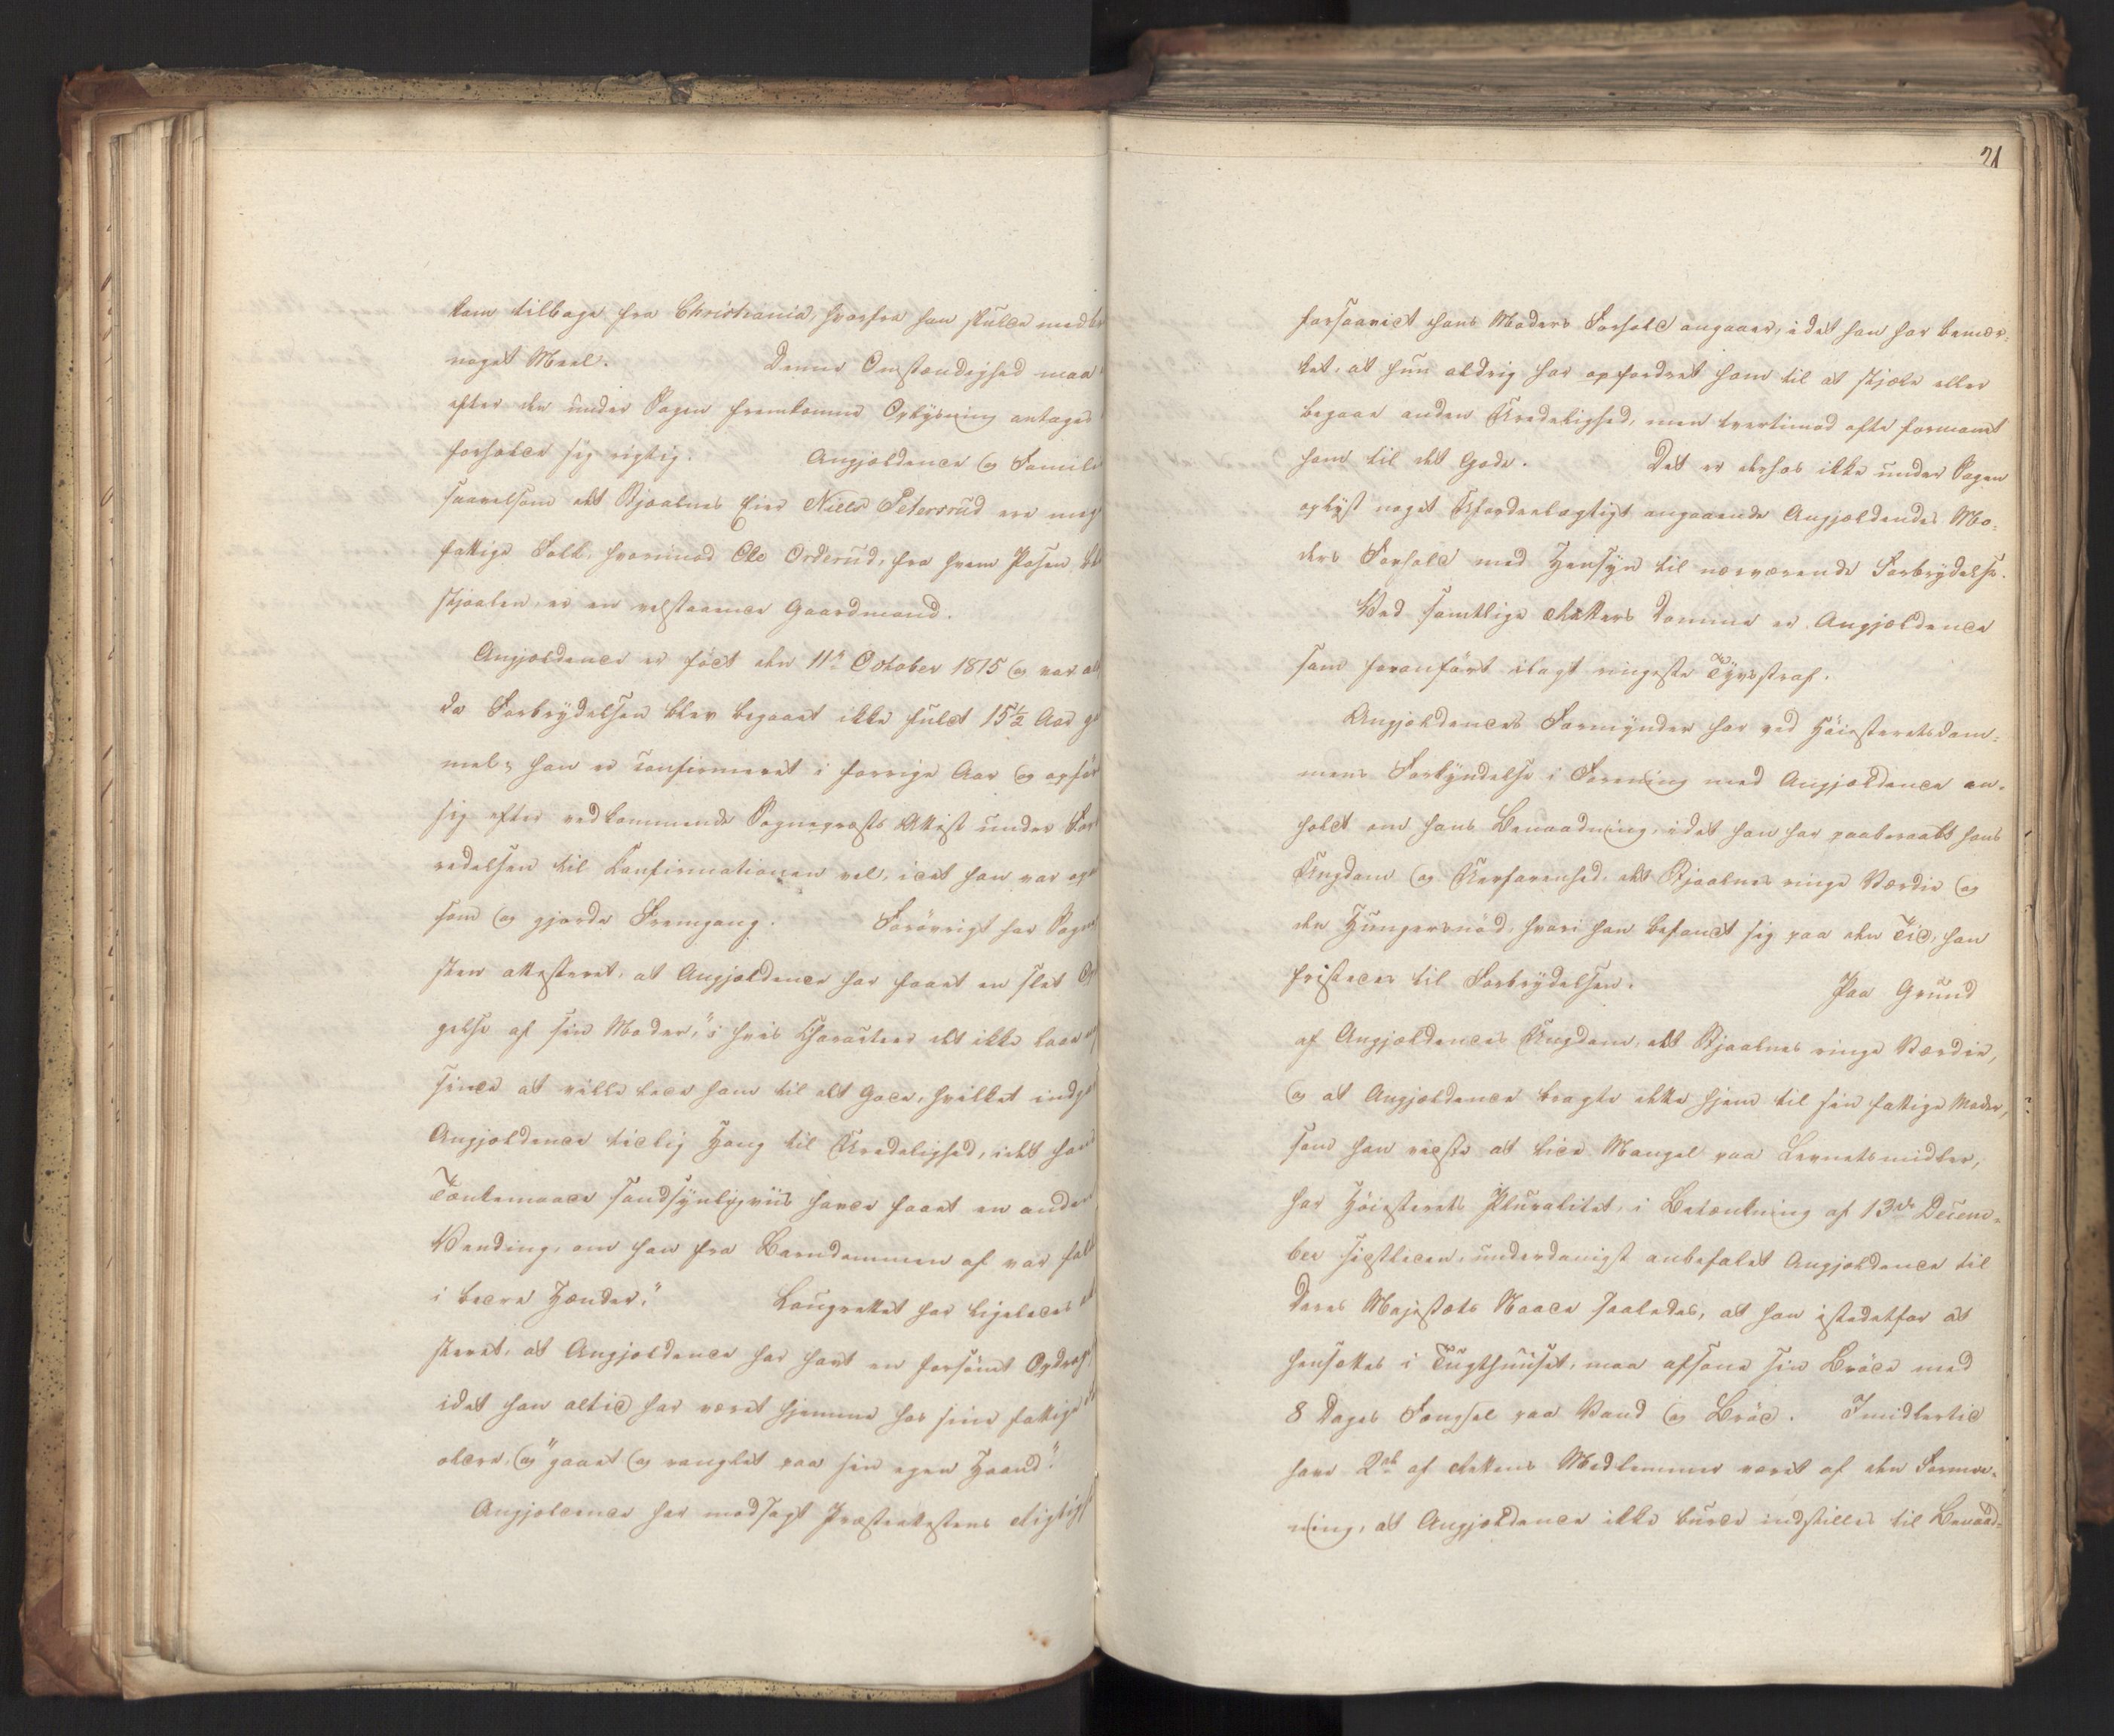 kom tilbage fra Christiania, hvorfra han skulde medbr
noget Meel. Denne Omstændighed maa
efter den under Sagen fremkomne Oplysning antages
forholde sig rigtig. Angjeldende og Famile
saavelsom det Stjaalnes Eier Niels Petersrud ere meg
fattige Folk, hvorimod Ole Orderud, fra hvem Posen bl
stjaalen, er en velstaaende Gaardmand.
Angjeldende er født den 11te October 1815 og var alt
da Forbrydelsen blev begaaet ikke fuldt 15½ Aar ga
mel; han er confirmeret i forrige Aar og opfør
sig efter vedkommende Sogneprests Attest under For
redelsen til Confirmationen vel, idet han var op
som og gjorde Fremgang. Forøvrigt har Sogne
sten attesteret, at Angjeldende har faaet en slet Op
gelse af sin Moder, "i hvis Charakteer det ikke laae
sinde at ville lede ham til det Gode, hvilket indga
Angjeldende tidlig Hang til Uredelighed, idet han
Tænkemaade sandsynligviis havde faaet en anden
Vending, om han fra Barndommen af var fal
i bedre Hænder." Laugrettet har ligeledes at
steret, at Angjeldende har havt en forsømt Opdrag
idet han altid har været hjemme hos sine fattige
ældre, og "gaaet og ranglet paa sin egen Haand".
Angjeldende har modsagt Præsteattestens Rigtigh
21
forsaavidt hans Moders Forhold angaaer, idet han har bemær-
ket, at hun aldrig har opfordret ham til at stjæle eller
begaae anden Uredelighed, men tvertimod ofte formanet
ham til det Gode. Det er derhos ikke under Sagen
oplyst noget Ufordeelagtigt angaaende Angjeldendes Mo-
ders Forhold med Hensyn til nærværende Forbrydelse.
Ved samtlige Retters Domme er Angjeldende
som foranført ilagt ringeste Tyvsstraf.
Angjeldendes Formynder har ved Høiesteretsdom-
mens Forkyndelse i Forening med Angjeldende an-
holdt om hans Benaadning, idet han har paaberaabt hans
Ungdom og Uerfarenhed, det Stjaalnes ringe Værdie og
den Hungersnød, hvori han befandt sig paa den Tid, han
fristedes til Forbrydelsen. Paa Grund
af Angjeldendes Ungdom, det Stjaalnes ringe Værdie,
og at Angjeldende bragte dette hjem til sin fattige Moder,
som han vidste at lide Mangel paa Levnetsmidler,
har Høiesterets Pluralitet, i Betænkning af 13de Decem-
ber sidstleden, underdanigst anbefalet Angjeldende til
Deres Majestæts Naade saaledes, at han istedetfor at
hensættes i Tugthuuset, maa afsone sin Brøde med
8 Dages Fængsel paa Vand og Brød. Imidlertid
have 2de af Rettens Medlemmer været af den Forme-
ning, at Angjeldende ikke burde indstilles til Benaad-